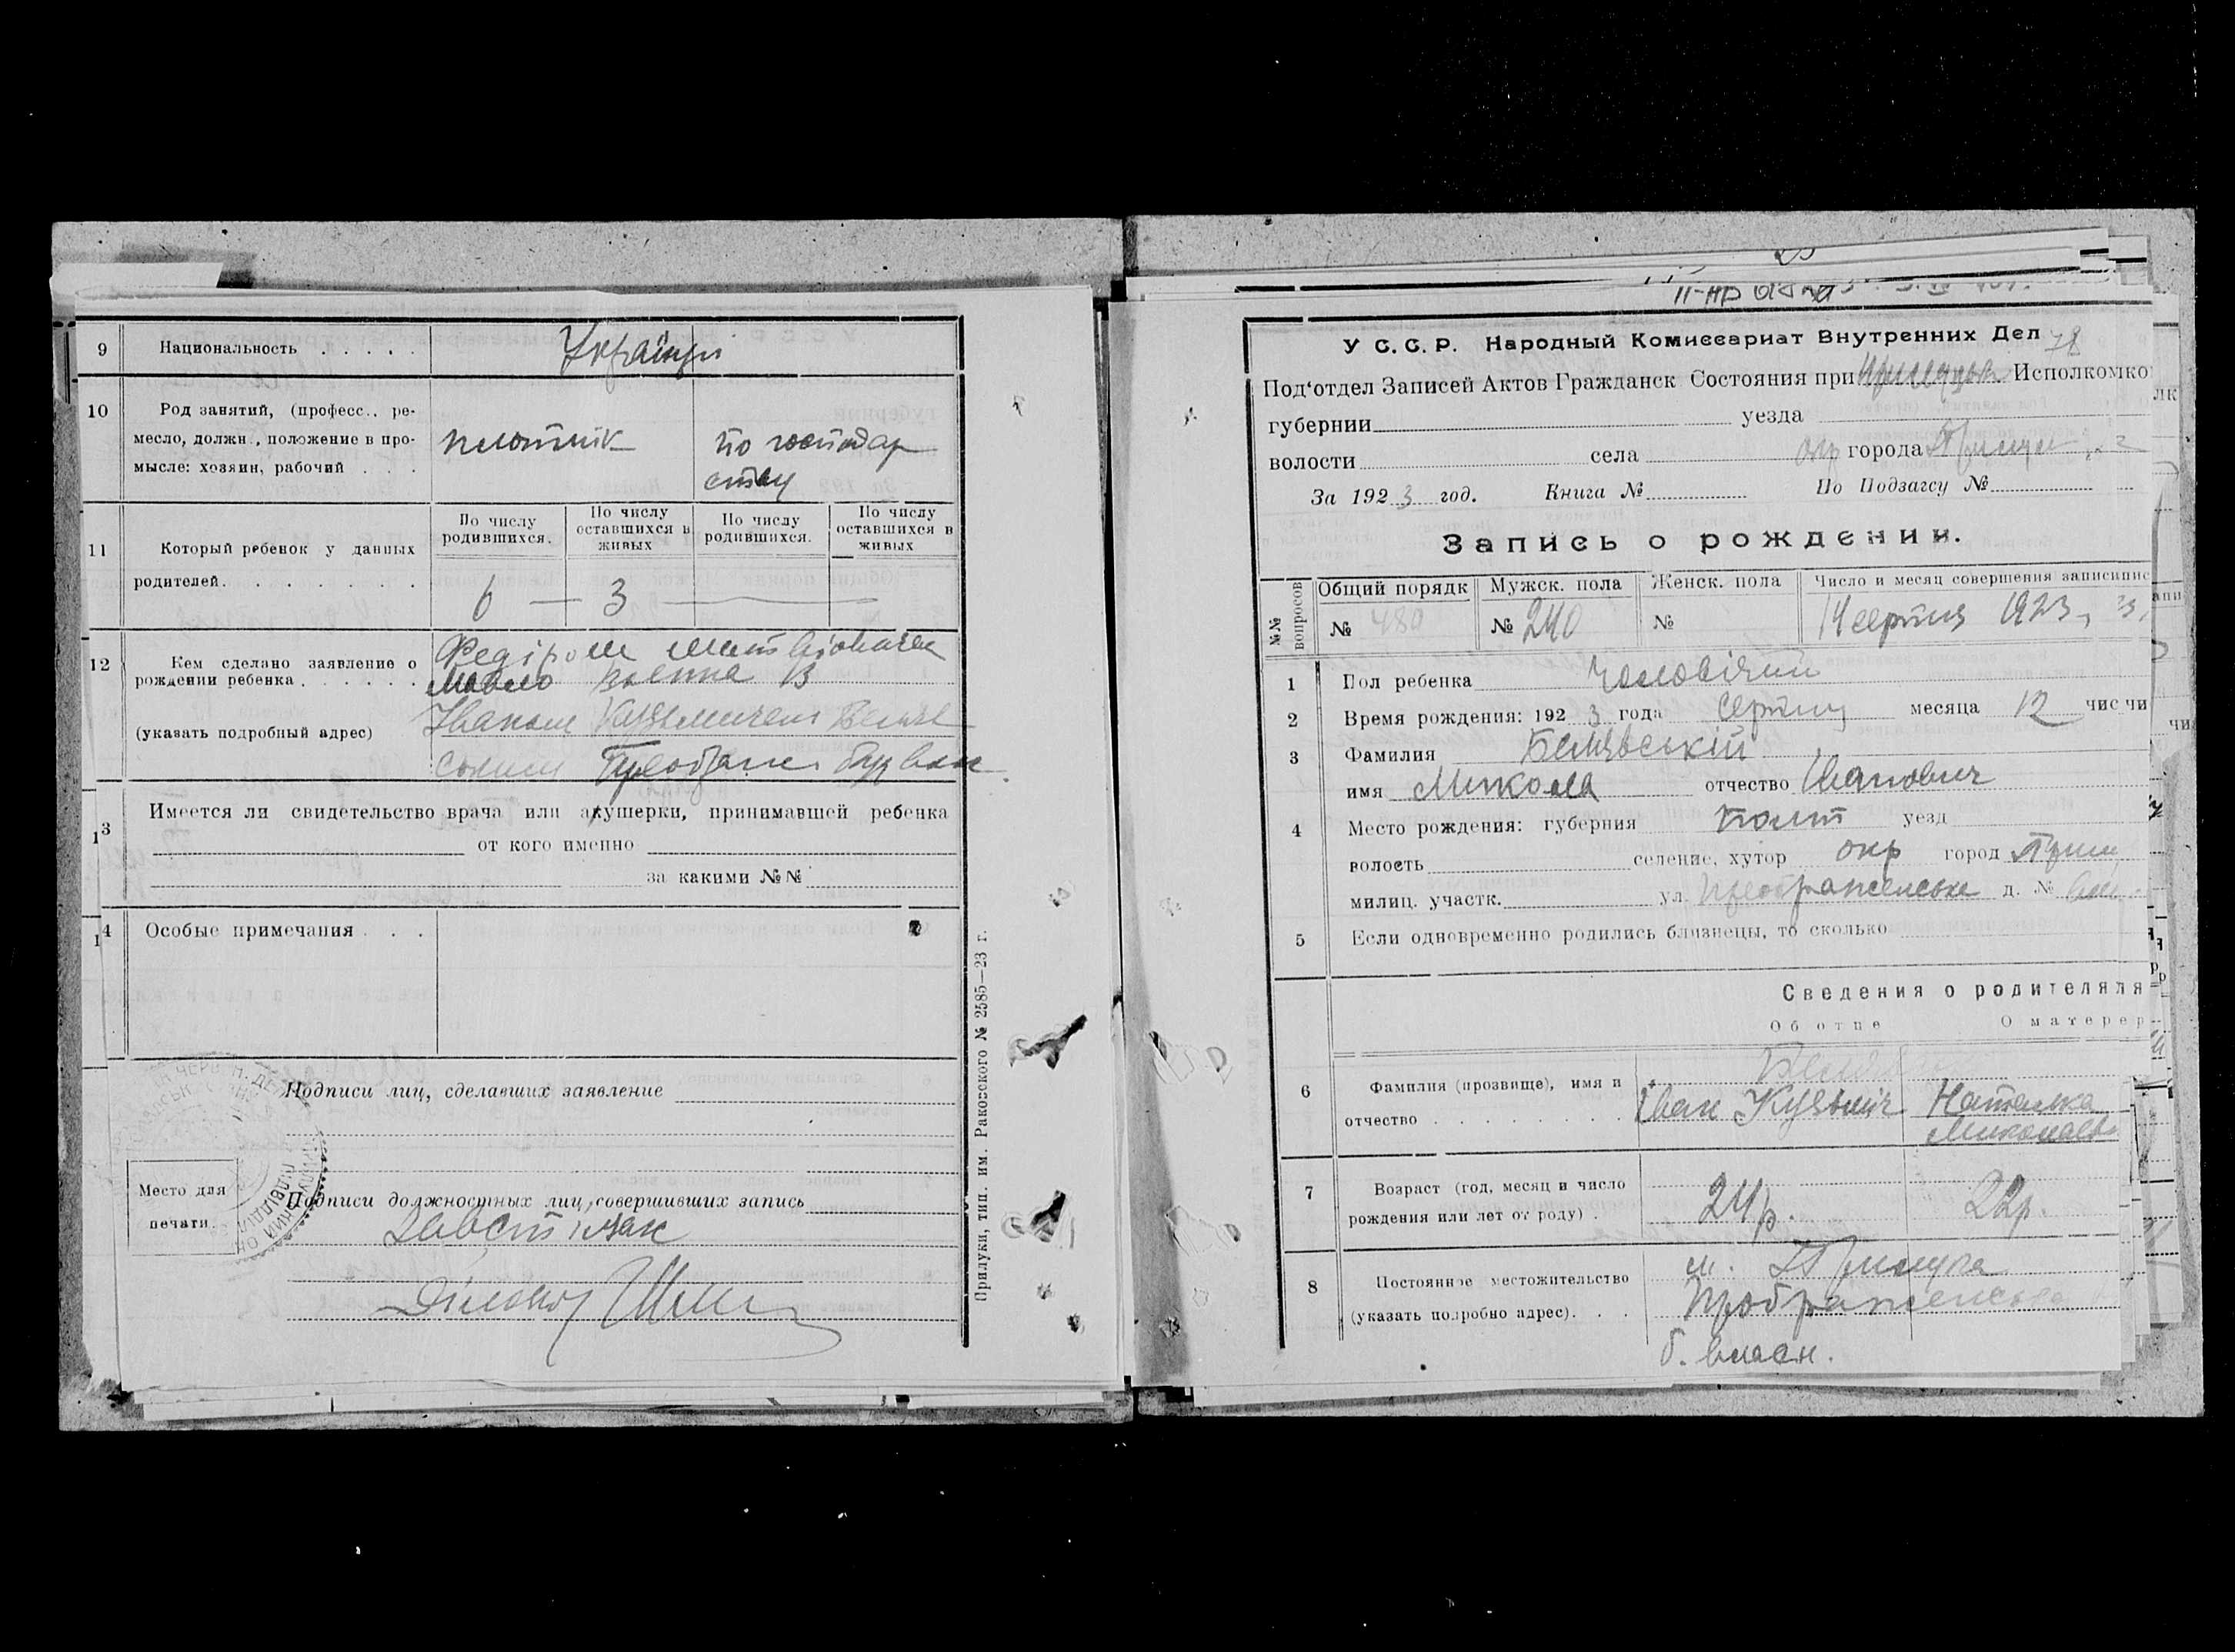 9 Национальность . . . . . Українці
10 Род занятий, (професс., ре-
месло, должн., положение в про-
мысле: хозяин, рабочий . . .
плотнік
по господар
ству
11 Который ребенок у данных
родителей. . . . . . . .
По числу родившихся.
По числу оставшихся в живых
По числу родившихся.
По числу оставшихся в живых
6 — 3 —
12 Кем сделано заявление о
рождении ребенка . . . . . .
(указать подробный адрес)
Федіром
Іваном
13 Имеется ли свидетельство врача или акушерки, принимавшей ребенка
от кого именно
за какими №№
14 Особые примечания . . .
Подписи лиц, сделавших заявление
Место для
печати.
Подписи должностных лиц, совершивших запись
Прилуки, тип. им. Раковского № 2585—23 г.
У С. С. Р. Народный Комиссариат Внутренних Дел 78
Под'отдел Записей Актов Гражданск Состояния при Исполкомко
губернии уезда
волости села окр города
За 1923 год. Книга № По Подзагсу №
Запись о рождении.
№№ вопросов
Общий порядк
№ 480
Мужск. пола
№ 240
Женск. пола
№
Число и месяц совершения записи
14 серпня 1923
1 Пол ребенка чоловічий
2 Время рождения: 1923 года серпня месяца 12 чис
3 Фамилия
имя Микола отчество Іванович
4 Место рождения: губерния Полт уезд
волость селение, хутор окр город Прил
милиц. участк. ул. Преображенське д. №
5 Если одновременно родились близнецы, то сколько
Сведения о родителях
Об отце О матер
6 Фамилия (прозвище), имя и
отчество . . . . . . . .
Іван Кузьміч
Наталка
Миколаєв
7 Возраст (год, месяц и число
рождения или лет от роду) .
24 р.
22 р.
8 Постоянное местожительство
(указать подробно адрес). . .
м. Прилука
Преображенська
б. власн.